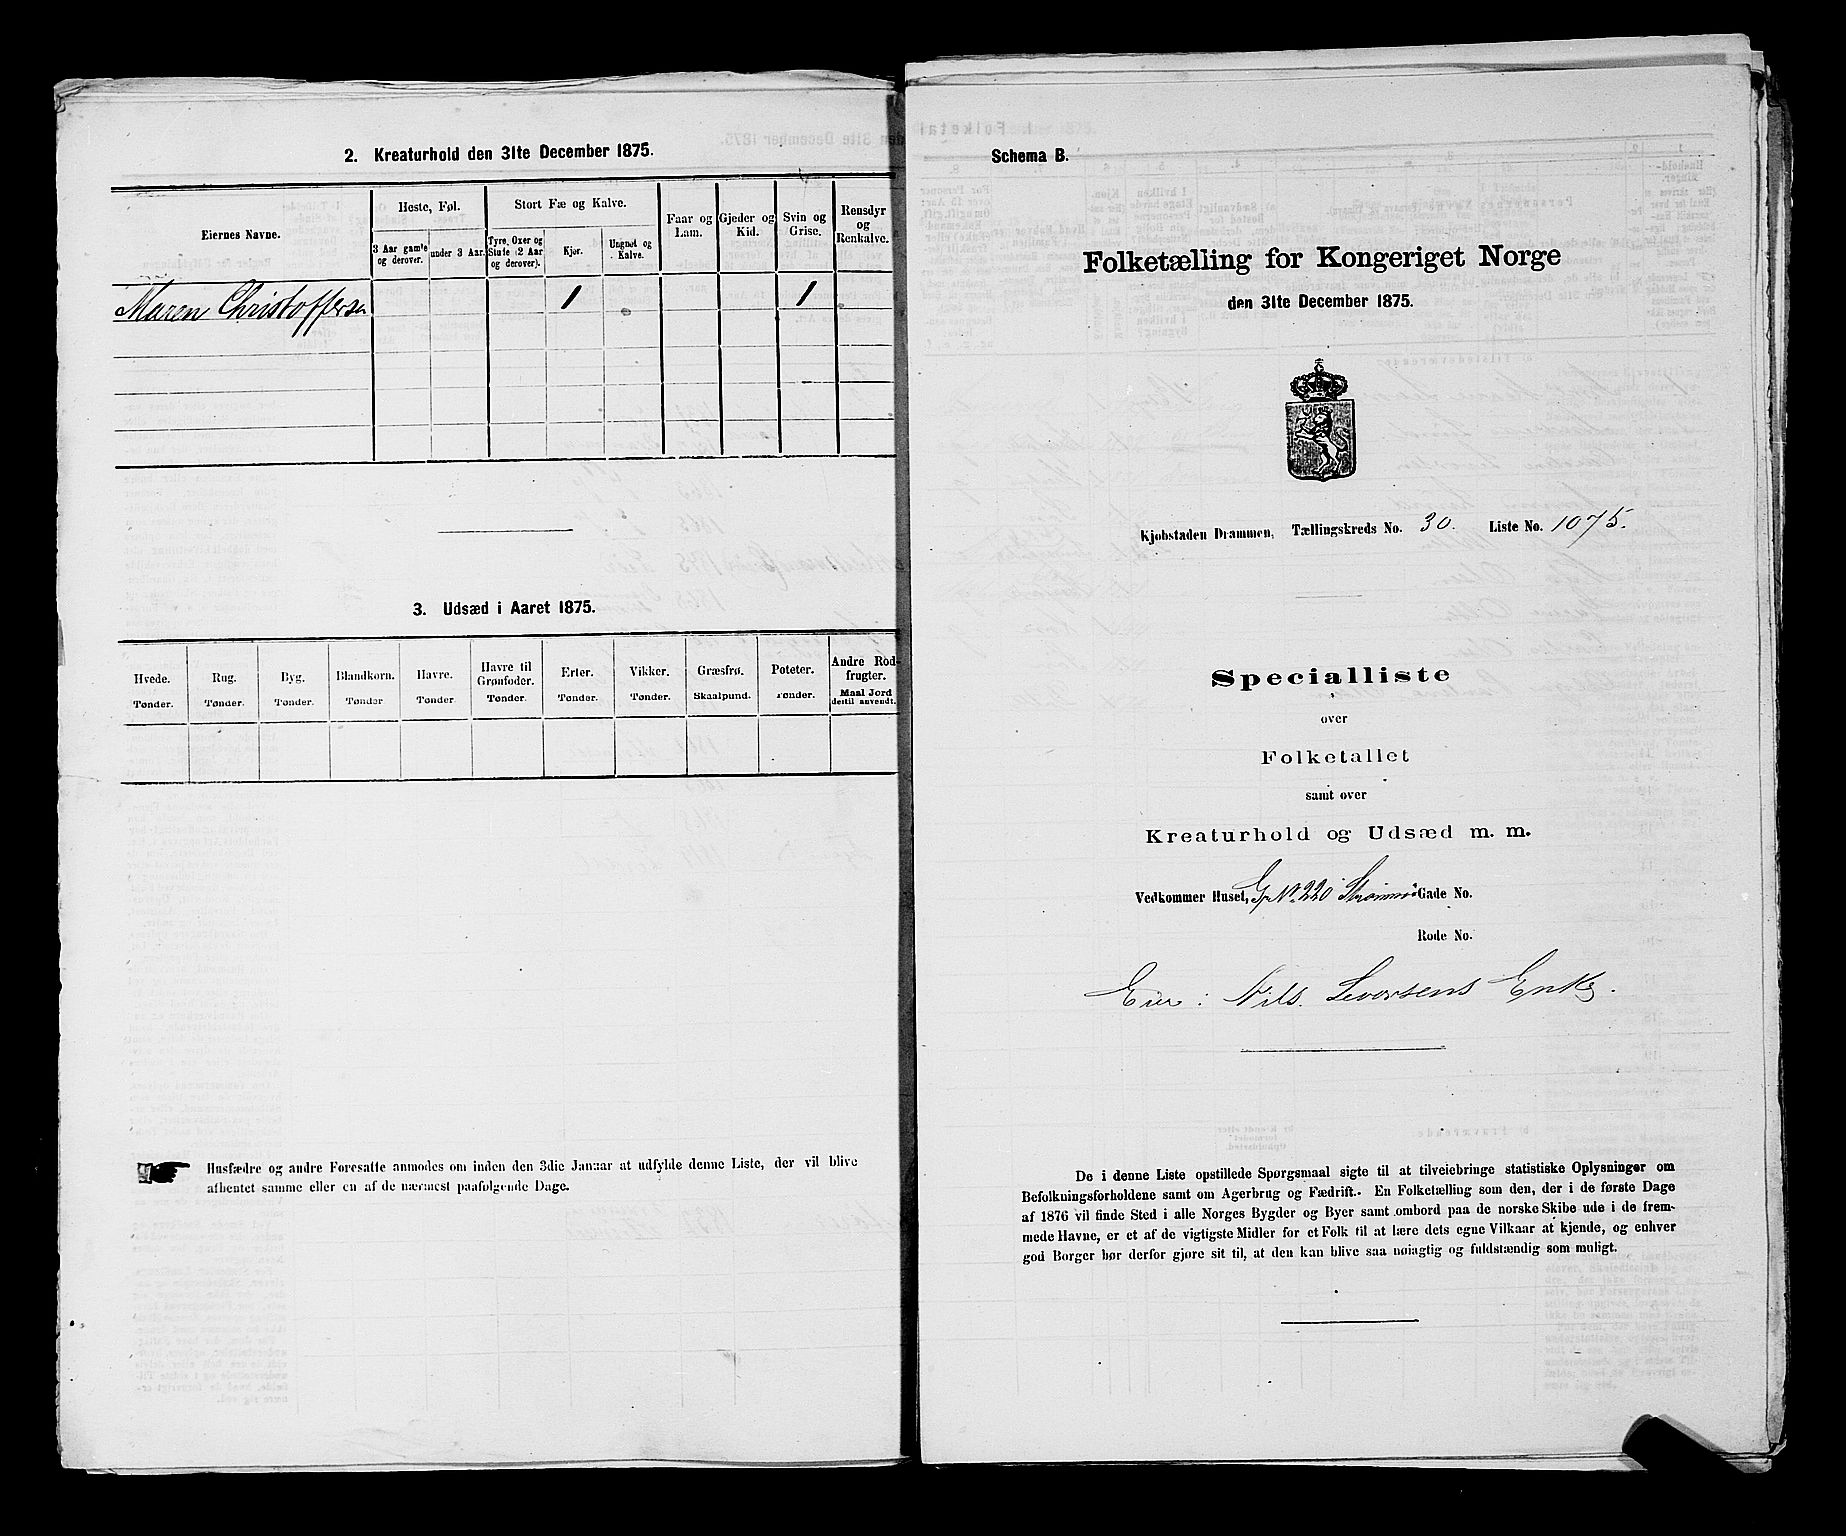 2. Kreaturhold den 31te December 1875.
Eiernes Navne.
Heste, Føl.
3 Aar gamle og derover.
under 3 Aar.
Stort Fæ og Kalve.
Tyre, Oxer og Stude (2 Aar og derover).
Kjør.
Ungnøt og Kalve.
Faar og Lam.
Gjeder og Kid.
Svin og Grise.
Rensdyr og Renkalve.
Maren Christoffersen 1 1
3. Udsæd i Aaret 1875.
Hvede. Rug. Byg. Blandkorn. Havre. Havre til Grønfoder. Erter. Vikker. Græsfrø. Poteter. Andre Rodfrugter.
Tønder. Tønder. Tønder. Tønder Tønder. Tønder. Tønder. Tønder. Skaalpund. Tønder. Maal Jord dertil anvendt.
Husfædre og andre Foresatte anmodes om inden den 3die Januar at udfylde denne Liste, der vil blive
afhentet samme eller en af de nærmest paafølgende Dage.
Schema B.
Folketælling for Kongeriget Norge
den 31te December 1875.
Kjøbstaden Drammen, Tællingskreds No. 30. Liste No. 1075.
Specialliste
over
Folketallet
samt over
Kreaturhold og Udsæd m. m.
Vedkommer Huset, G. No. 220 Strømsø Gade No.
Rode No.
Eier: Nils Severtsens Enke.
De i denne Liste opstillede Spørgsmaal sigte til at tilveiebringe statistiske Oplysninger om
Befolkningsforholdene samt om Agerbrug og Fædrift. En Folketælling som den, der i de første Dage
af 1876 vil finde Sted i alle Norges Bygder og Byer samt ombord paa de norske Skibe ude i de frem-
mede Havne, er et af de vigtigste Midler for et Folk til at lære dets egne Vilkaar at kjende, og enhver
god Borger bør derfor gjøre sit til, at den kan blive saa nøiagtig og fuldstændig som muligt.